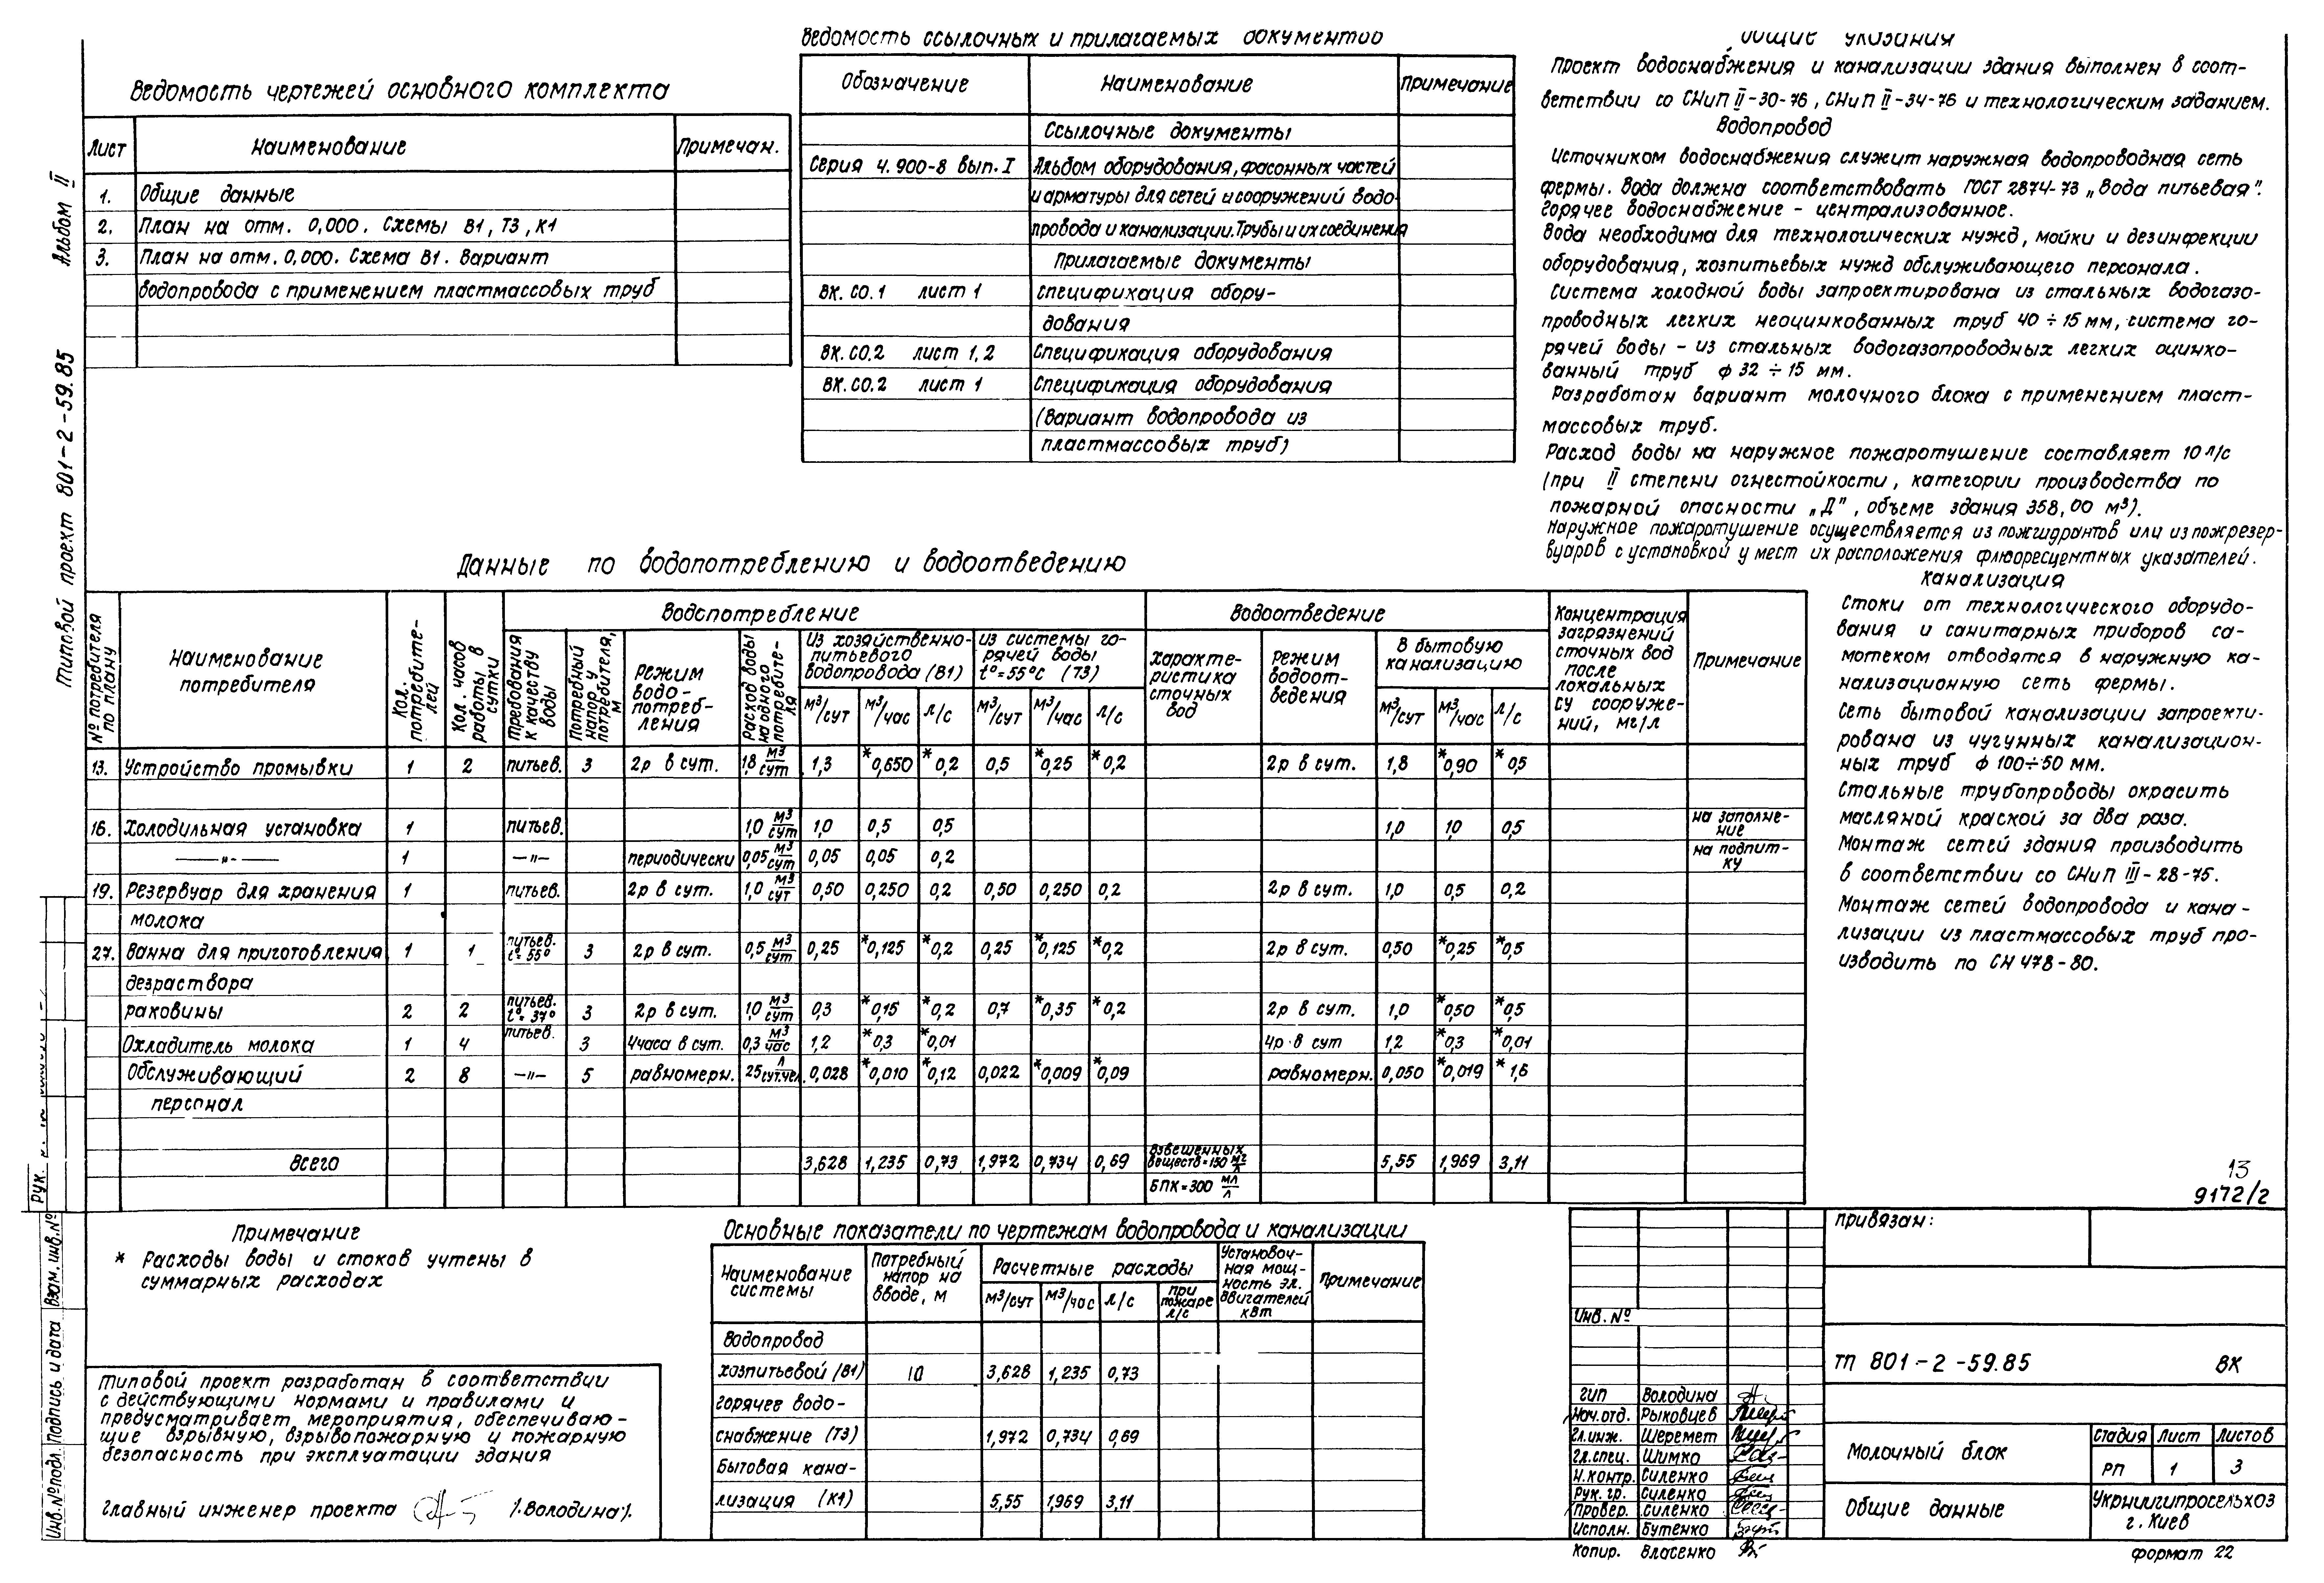 Альбом II
Типовой проект 801-2-59.85
Ведомость чертежей основного комплекта
Лист Наименование Примечан.
1. Общие данные
2. План на отм. 0,000. Схемы В1, Т3, К1
3. План на отм. 0,000. Схема В1. Вариант
водопровода с применением пластмассовых труб
Ведомость ссылочных и прилагаемых документов
Обозначение Наименование Примечание
Ссылочные документы
Серия 4.900-8 вып. I Альбом оборудования, фасонных частей
и арматуры для сетей и сооружений водо-
провода и канализации. Трубы и их соединения
Прилагаемые документы
ВК.СО.1 лист 1 Спецификация обору-
дования
ВК.СО.2 лист 1,2 Спецификация оборудования
ВК.СО.2 лист 1 Спецификация оборудования
(Вариант водопровода из
пластмассовых труб)
Общие указания
Проект водоснабжения и канализации здания выполнен в соот-
ветствии со СНиП II-30-76, СНиП II-34-76 и технологическим заданием.
Водопровод
Источником водоснабжения служит наружная водопроводная сеть
фермы. Вода должна соответствовать ГОСТ 2874-73 „Вода питьевая".
Горячее водоснабжение - централизованное.
Вода необходима для технологических нужд, мойки и дезинфекции
оборудования, хозпитьевых нужд обслуживающего персонала.
Система холодной воды запроектирована из стальных водогазо-
проводных легких неоцинкованных труб 40÷15 мм, система го-
рячей воды - из стальных водогазопроводных легких оцинко-
ванный труб ф 32÷15 мм.
Разработан вариант молочного блока с применением пласт-
массовых труб.
Расход воды на наружное пожаротушение составляет 10 л/с
(при II степени огнестойкости, категории производства по
пожарной опасности „Д", объеме здания 358,00 м³).
Наружное пожаротушение осуществляется из пожгидрантов или из пожрезер-
вуаров с установкой у мест их расположения флюоресцентных указателей.
Канализация
Стоки от технологического оборудо-
вания и санитарных приборов са-
мотеком отводятся в наружную ка-
нализационную сеть фермы.
Сеть бытовой канализации запроекти-
рована из чугунных канализацион-
ных труб ф 100÷50 мм.
Стальные трубопроводы окрасить
масляной краской за два раза.
Монтаж сетей здания производить
в соответствии со СНиП III-28-75.
Монтаж сетей водопровода и кана-
лизации из пластмассовых труб про-
изводить по СН 478-80.
Данные по водопотреблению и водоотведению
№ потребителя по плану
Наименование потребителя
Кол. потребите-лей
Кол. часов работы в сутки
Водопотребление
Требования к качеству воды
Потребный напор у потребителя, м
Режим водо-потреб-ления
Расход воды на одного потребите-ля
Из хозяйственно-питьевого водопровода (В1)
Из системы го-рячей воды t°=55°С (Т3)
Водоотведение
Характе-ристика сточных вод
Режим водоот-ведения
В бытовую канализацию
Концентрация загрязнений сточных вод после локальных су сооруже-ний, мг/л
Примечание
м³/сут м³/час л/с м³/сут м³/час л/с м³/сут м³/час л/с
13. Устройство промывки 1 2 питьев. 3 2р в сут. 1,8 м³/сут 1,3 *0,650 *0,2 0,5 *0,25 *0,2 2р в сут. 1,8 *0,90 *0,5
16. Холодильная установка 1 питьев. 1,0 м³/сут 1,0 0,5 0,5 1,0 1,0 0,5 на заполне-ние
—"— 1 —"— периодически 0,05 м³/сут 0,05 0,05 0,2 на подпит-ку
19. Резервуар для хранения 1 питьев. 2р в сут. 1,0 м³/сут 0,50 0,250 0,2 0,50 0,250 0,2 2р в сут. 1,0 0,5 0,2
молока
27. Ванна для приготовления 1 1 питьев. t°=55° 3 2р в сут. 0,5 м³/сут 0,25 *0,125 *0,2 0,25 *0,125 *0,2 2р в сут. 0,50 *0,25 *0,5
дезраствора
раковины 2 2 питьев. t°=37° 3 2р в сут. 1,0 м³/сут 0,3 *0,15 *0,2 0,7 *0,35 *0,2 2р в сут. 1,0 *0,50 *0,5
Охладитель молока 1 4 питьев. 3 4часа в сут. 0,3 м³/час 1,2 *0,3 *0,01 4р в сут 1,2 *0,3 *0,01
Обслуживающий 2 8 —"— 5 равномерн. 25 л/сут.чел. 0,028 *0,010 *0,12 0,022 *0,009 *0,09 равномерн. 0,050 *0,019 *1,6
персонал
Всего 3,628 1,235 0,73 1,972 0,734 0,69 Взвешенных веществ=150 мг/л 5,55 1,969 3,11
БПК=300 мл/л
13
9172/2
Примечание
* Расходы воды и стоков учтены в
суммарных расходах
Типовой проект разработан в соответствии
с действующими нормами и правилами и
предусматривает мероприятия, обеспечиваю-
щие взрывную, взрывопожарную и пожарную
безопасность при эксплуатации здания
Главный инженер проекта /.Володина/.
Основные показатели по чертежам водопровода и канализации
Наименование системы
Потребный напор на вводе, м
Расчетные расходы
м³/сут м³/час л/с при пожаре л/с
Установоч-ная мощ-ность эл. двигателей кВт
Примечание
Водопровод
хозпитьевой (В1) 10 3,628 1,235 0,73
Горячее водо-
снабжение (Т3) 1,972 0,734 0,69
Бытовая кана-
лизация (К1) 5,55 1,969 3,11
Привязан:
Инв. №
ТП 801-2-59.85 ВК
ГИП Володина
Нач.отд. Рыковцев
Гл.инж. Шеремет
Гл.спец. Шимко
Н.контр. Силенко
Рук. гр. Силенко
Провер. Силенко
Исполн. Бутенко
Молочный блок
Стадия Лист Листов
РП 1 3
Общие данные
Укрниигипросельхоз
г. Киев
Копир. Власенко
формат 22
Рук.
Взам. инв. №
Подпись и дата
Инв. № подл.